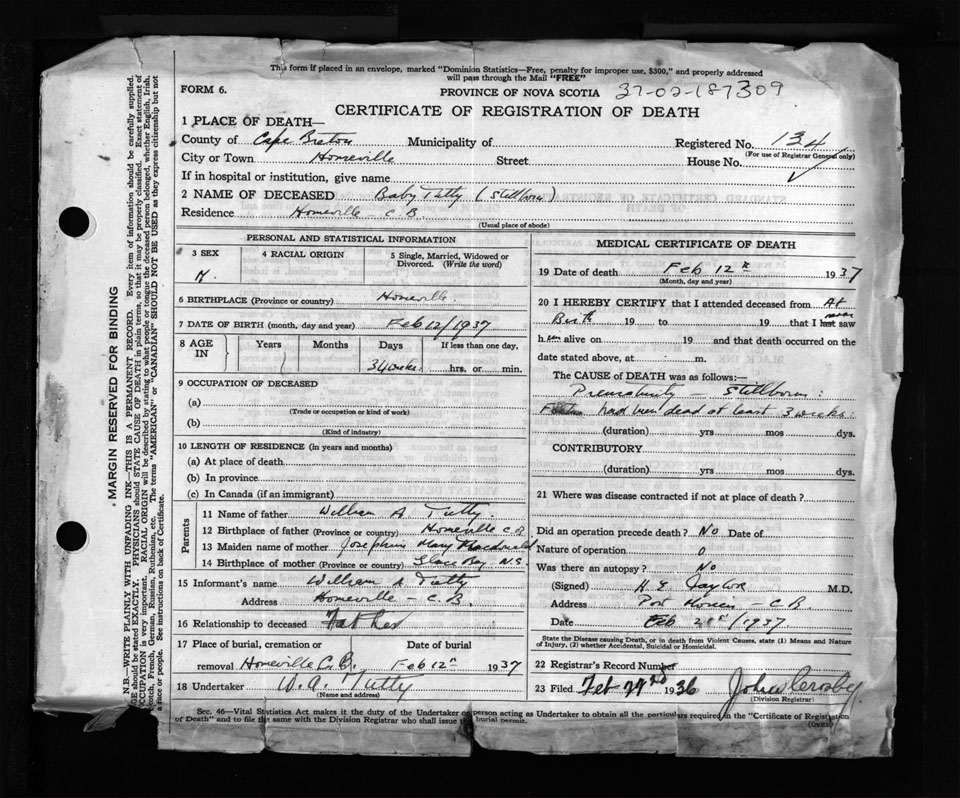 This form if placed in an envelope, marked "Dominion Statistics—Free, penalty for improper use, $300," and properly addressed
will pass through the Mail "FREE"
FORM 6.
PROVINCE OF NOVA SCOTIA 37-02-187309
CERTIFICATE OF REGISTRATION OF DEATH
1 PLACE OF DEATH—
County of Cape Breton Municipality of Registered No. 134
(For use of Registrar General only)
City or Town Homeville Street House No.
If in hospital or institution, give name
2 NAME OF DECEASED Baby Tutty (Stillborn)
Residence Homeville - C.B.
(Usual place of abode)
PERSONAL AND STATISTICAL INFORMATION
3 SEX 4 RACIAL ORIGIN 5 Single, Married, Widowed or
Divorced. (Write the word)
M.
6 BIRTHPLACE (Province or country) Homeville.
7 DATE OF BIRTH (month, day and year) Feb 12/1937
8 AGE IN Years Months Days If less than one day,
34 weeks hrs. or min.
9 OCCUPATION OF DECEASED
(a)
(Trade or occupation or kind of work)
(b)
(Kind of industry)
10 LENGTH OF RESIDENCE (in years and months)
(a) At place of death
(b) In province
(c) In Canada (if an immigrant)
Parents
11 Name of father William A Tutty.
12 Birthplace of father (Province or country) Homeville C.B.
13 Maiden name of mother Josephine Mary MacDonald
14 Birthplace of mother (Province or country) Glace Bay N.S.
15 Informant's name William A Tutty
Address Homeville - C.B.
16 Relationship to deceased Father
17 Place of burial, cremation or Date of burial
removal Homeville C.B. Feb 12th 1937
18 Undertaker W. A. Tutty
(Name and address)
MEDICAL CERTIFICATE OF DEATH
19 Date of death Feb 12th 1937
(Month, day and year)
20 I HEREBY CERTIFY that I attended deceased from At
Birth 19 to 19 that I last never saw
him alive on 19 and that death occurred on the
date stated above, at m.
The CAUSE of DEATH was as follows:—
Prematurity - Stillborn:
Foetus had been dead at least 3 weeks:
(duration) yrs mos dys.
CONTRIBUTORY
(duration) yrs mos dys.
21 Where was disease contracted if not at place of death?
Did an operation precede death? No Date of
Nature of operation 0
Was there an autopsy? No
(Signed) H. E. Taylor M.D.
Address Port Morien - C.B.
Date Feb 21st/1937
State the Disease causing Death, or in death from Violent Causes, state (1) Means and Nature
of Injury, (2) whether Accidental, Suicidal or Homicidal.
22 Registrar's Record Number
23 Filed Feb 22nd 1936 John Crosby
(Division Registrar)
Sec. 46—Vital Statistics Act makes it the duty of the Undertaker or person acting as Undertaker to obtain all the particulars required in the "Certificate of Registration
of Death" and to file the same with the Division Registrar who shall issue the burial permit.
(OVER)
MARGIN RESERVED FOR BINDING
N.B.—WRITE PLAINLY WITH UNFADING INK—THIS IS A PERMANENT RECORD. Every item of information should be carefully supplied.
AGE should be stated EXACTLY. PHYSICIANS should STATE CAUSE OF DEATH in plain terms, so that it may be properly classified. Exact statement of
OCCUPATION is very important. RACIAL ORIGIN will be described by stating to what people or tongue the deceased person belonged, whether English, Irish,
Scotch, French, German, Russian, Ruthenian, etc. The terms "AMERICAN" or "CANADIAN" SHOULD NOT BE USED as they express citizenship but not
a race or people. See instructions on back of Certificate.